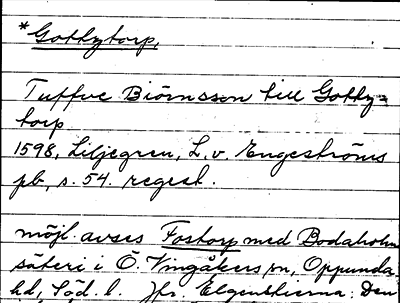 *Gottztorp,
Tuffve Biörnsson till Gottz=
torp
1598, Liljegren, L. v. Engeströms
pb, s. 54. regest.
möjl. avses Fostorp med Bodaholm
säteri i Ö. Vingåkers sn, Oppunda
hd, Söd. l. Jfr. Elgenstierna. Den